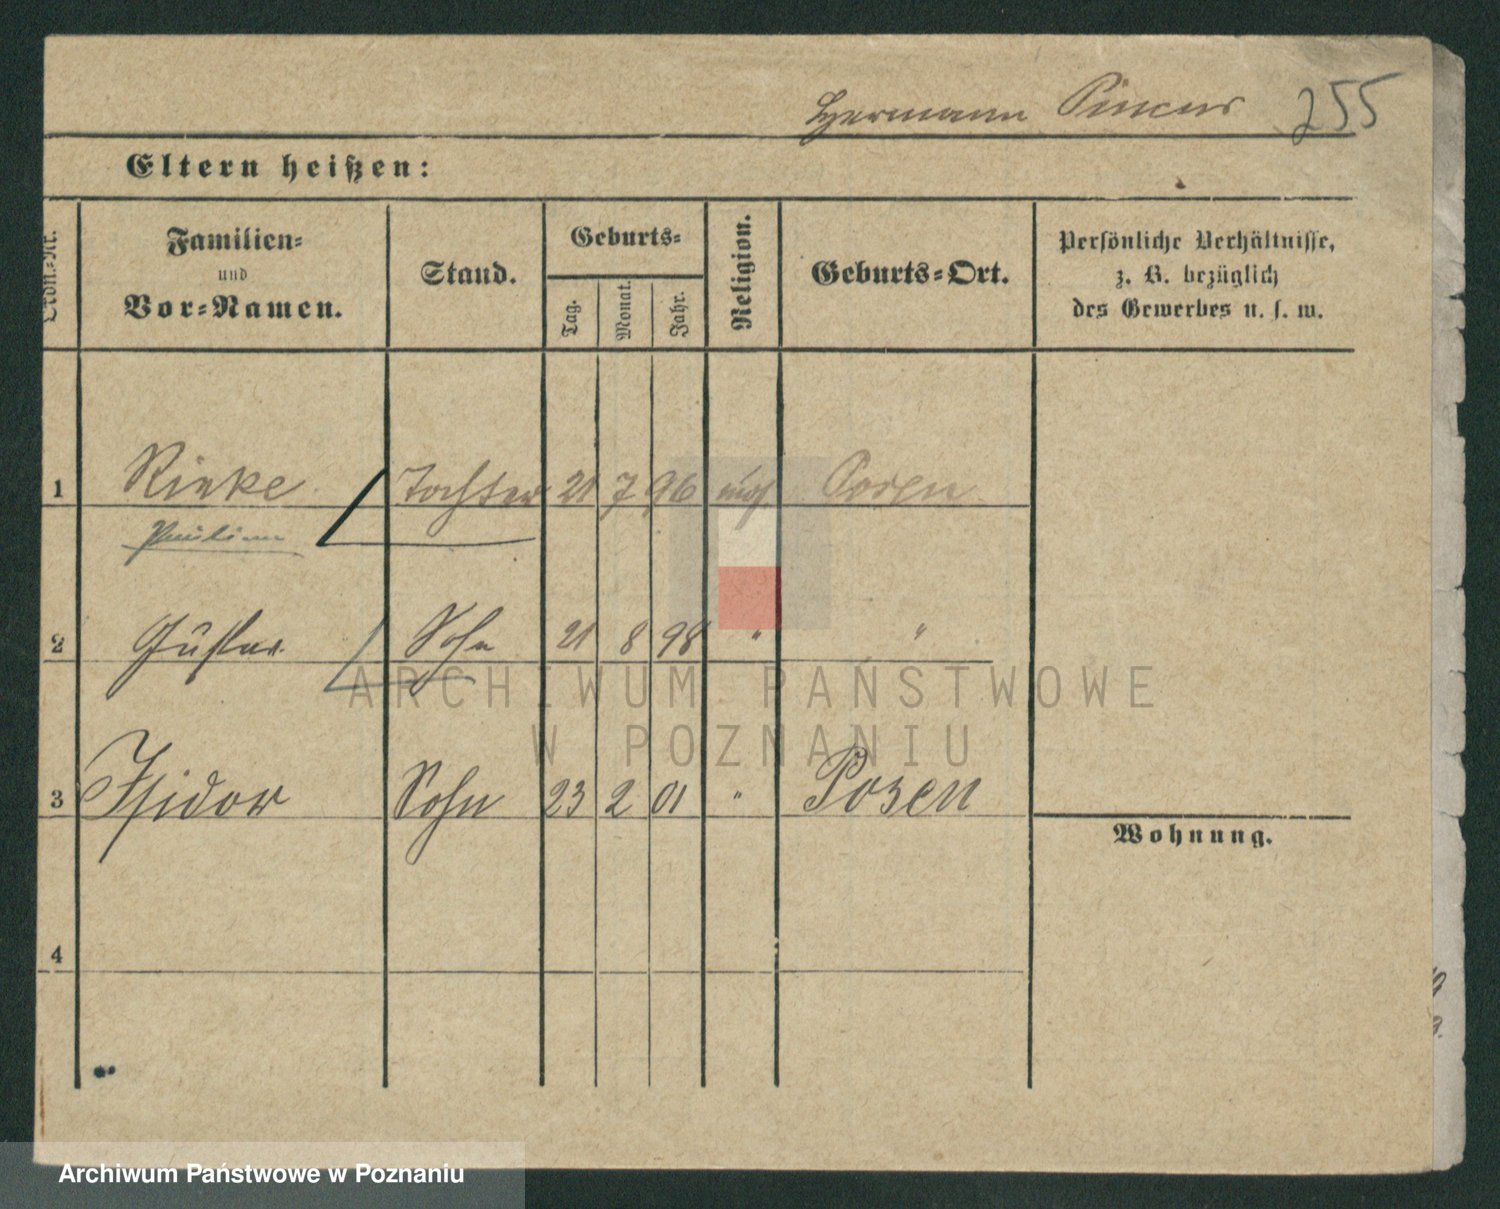 Hermann Pincus 255
Eltern heißen:
Ordn.-Nr.
Familien-
und
Vor-Namen.
Stand.
Geburts-
Tag.
Monat.
Jahr.
Religion.
Geburts-Ort.
Persönliche Verhältnisse,
z. B. bezüglich
des Gewerbes u. s. w.
1 Rieke Tochter 21 7 96 mos. Posen
2 Gustav Sohn 21 8 98 " "
3 Isidor Sohn 23 2 01 " Posen
Wohnung.
4
ARCHIWUM PAŃSTWOWE
W POZNANIU
Archiwum Państwowe w Poznaniu